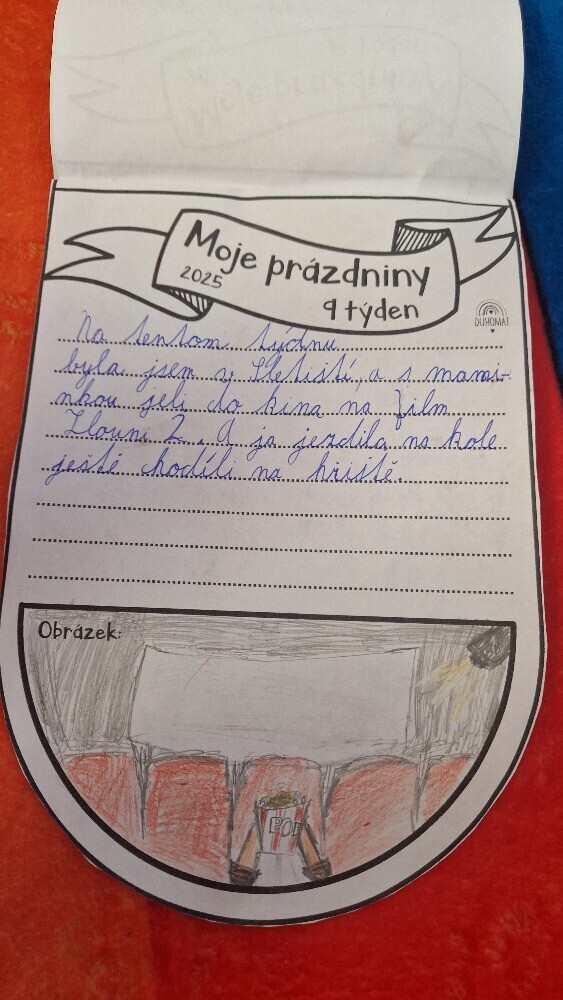 Moje prázdniny
2025
9 týden
DUHOMAT
Na tentom týdnu
byla jsem v Sletistí, a s mami-
nkou jeli do kina na film
Zlouni 2. A ja jezdila na kole
ještě chodíli na hřiště.
Obrázek:
POP